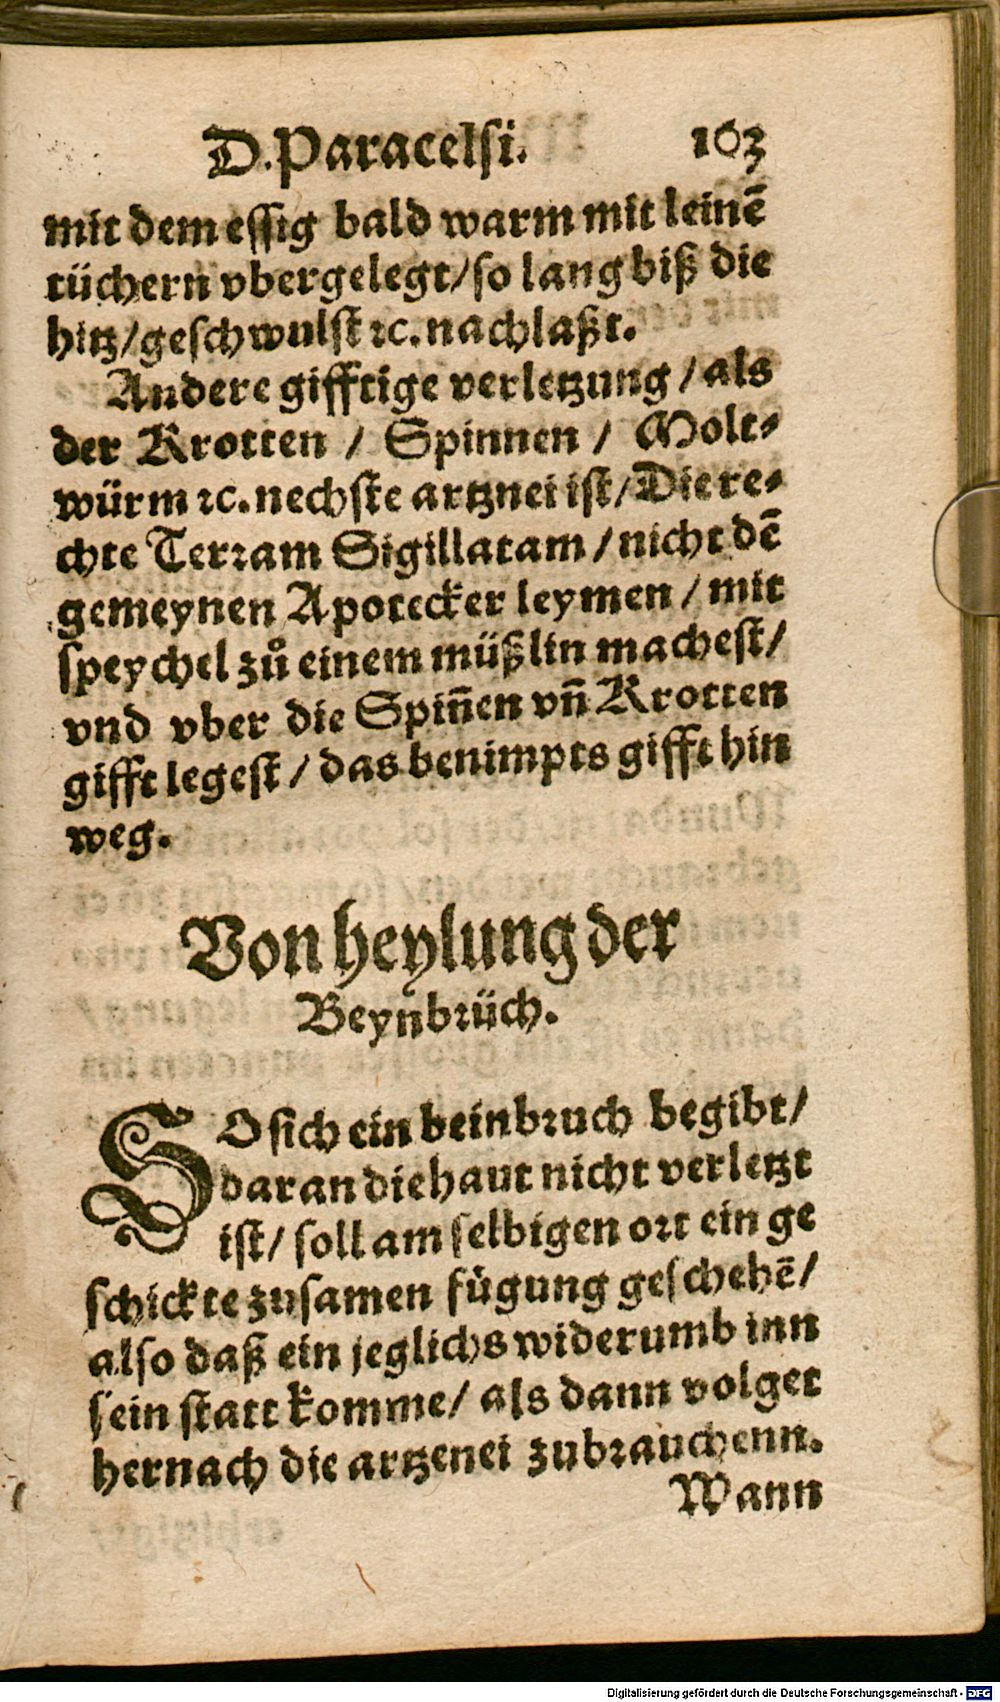 D. Paracelsi. 163
mit dem essig bald warm mit leinē
tüchern vbergelegt/so lang biß die
hitz/geschwulst ꝛc. nachlaßt.
Andere gifftige verletzung/als
der Krotten / Spinnen / Molt⸗
würm ꝛc. nechste artznei ist/Die re⸗
chte Terram Sigillatam/nicht dē
gemeynen Apotecker leymen/mit
speychel zů einem müßlin machest/
vnd vber die Spiñen vñ Krotten
gifft legest/das benimpts gifft hin
weg.
Von heylung der
Beynbrüch.
SO sich ein beinbruch begibt/
daran die haut nicht verletzt
ist/ soll am selbigen ort ein ge
schickte zusamen fügung geschehē/
also daß ein jeglichs widerumb inn
sein statt komme/ als dann volget
hernach die artzenei zubrauchenn.
Wann
Digitalisierung gefördert durch die Deutsche Forschungsgemeinschaft - DFG